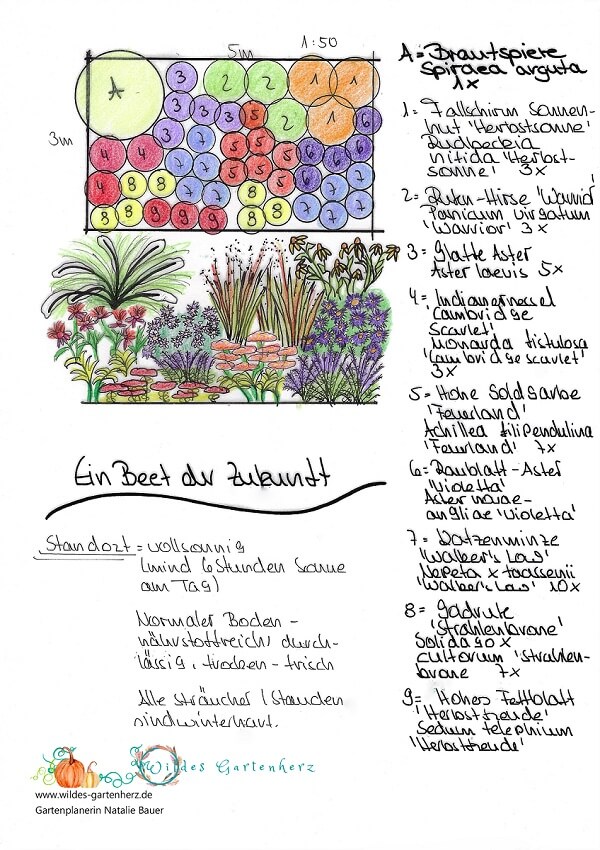 5m 1:50
3m
A 3 2 2 1 1
3 3 3 5 2 1 6
4 4 7 7 5 5 6 6 6
4 8 8 7 7 5 5 5 6 7 7
8 8 9 9 9 8 8 7 7 7
A = Brautspiere
Spiraea arguta
1x
1 = Fallschirm Sonnen-
hut 'Herbstsonne'
Rudbeckia
nitida 'Herbst-
sonne' 3x
2 = Ruten-Hirse 'Warrior'
Panicum virgatum
'Warrior' 3x
3 = Glatte Aster
Aster laevis 5x
4 = Indianernessel
'Cambridge
Scarlet'
Monarda fistulosa
'Cambridge scarlet'
3x
5 = Hohe Goldgarbe
'Feuerland'
Achillea filipendulina
'Feuerland' 7x
6 = Raublatt-Aster
'Violetta'
Aster novae-
angliae 'Violetta'
7 = Katzenminze
'Walker's Low'
Nepeta x faassenii
'Walker's Low' 10x
8 = Goldrute
'Strahlenkrone'
Solidago x
cultorum 'Strahlen-
krone' 7x
9 = Hohes Fettblatt
'Herbstfreude'
Sedum telephium
'Herbstfreude'
Ein Beet der Zukunft
Standort = vollsonnig
(mind 6 Stunden Sonne
am Tag)
Normaler Boden -
nährstoffreich, durch-
lässig, trocken - frisch
Alle Sträucher / Stauden
sind winterhart.
Wildes Gartenherz
www.wildes-gartenherz.de
Gartenplanerin Natalie Bauer